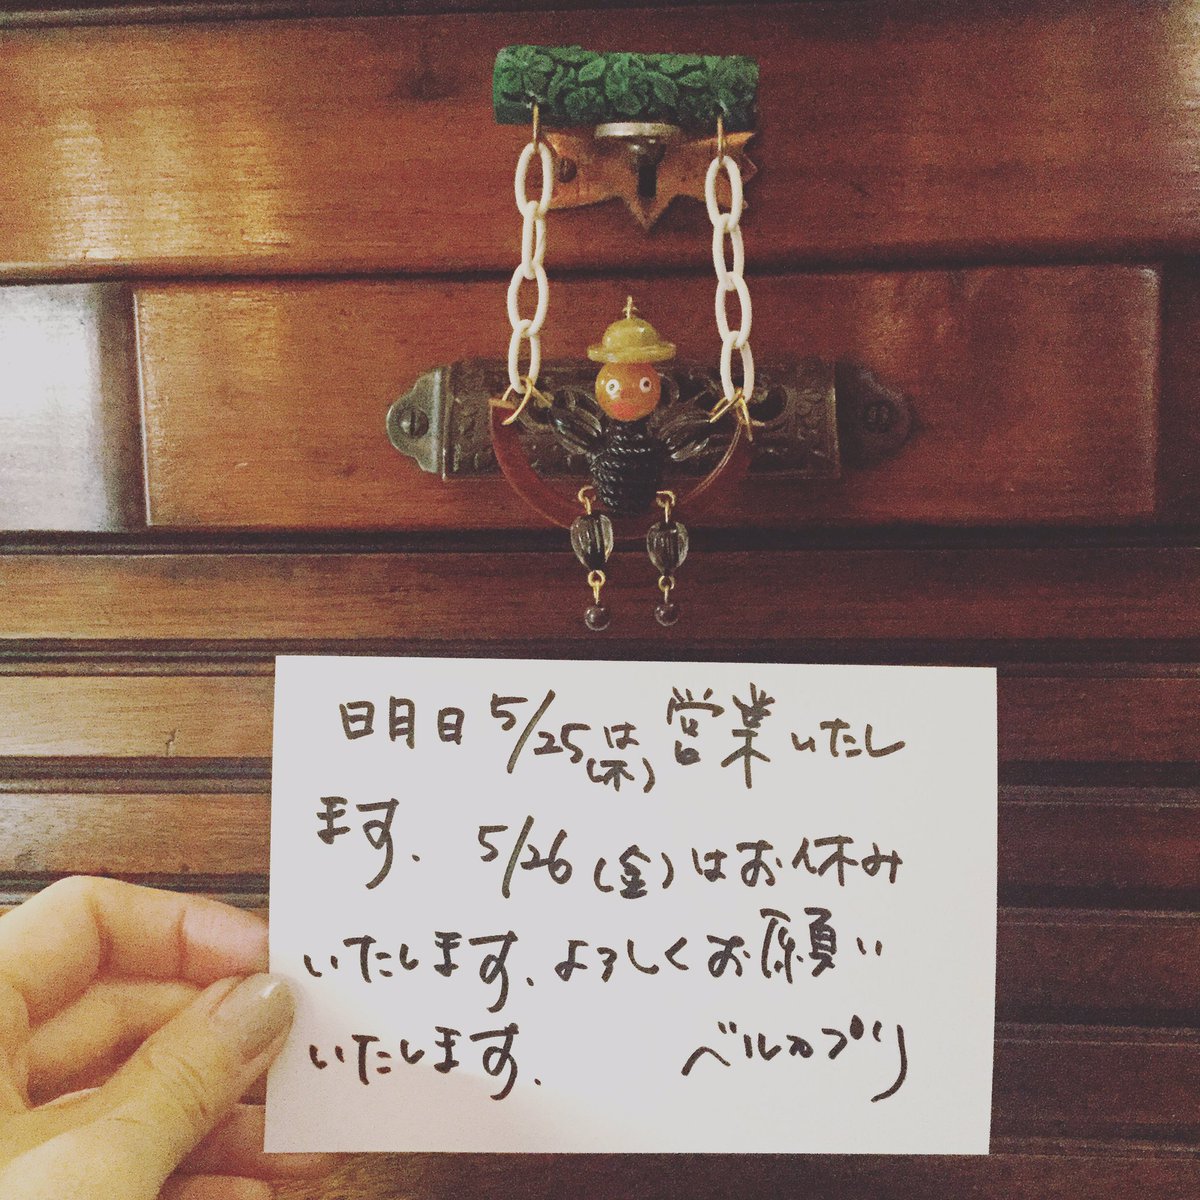 明日5/25(木)は営業いたし
ます. 5/26(金)はお休み
いたします. よろしくお願い
いたします. ベルカプリ